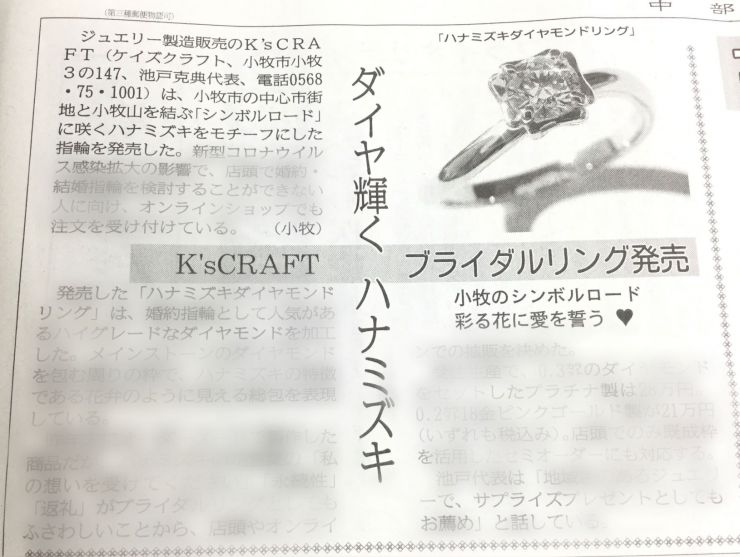 (第三種郵便物認可)
中部
ジュエリー製造販売のK'sCRA
FT(ケイズクラフト、小牧市小牧
3の147、池戸克典代表、電話0568
・75・1001)は、小牧市の中心市街
地と小牧山を結ぶ「シンボルロード」
に咲くハナミズキをモチーフにした
指輪を発売した。新型コロナウイル
ス感染拡大の影響で、店頭で婚約・
結婚指輪を検討することができない
人に向け、オンラインショップでも
注文を受け付けている。 (小牧)
ダイヤ輝く ハナミズキ
「ハナミズキダイヤモンドリング」
K'sCRAFT ブライダルリング発売
小牧のシンボルロード
彩る花に愛を誓う ♥
発売した「ハナミズキダイヤモンド
リング」は、婚約指輪として人気があ
るハイグレードなダイヤモンドを加工
した。メインストーンのダイヤモンド
を包む周りの枠で、ハナミズキの特徴
である花弁のように見える総包を表現
している。
した
商品だ 「私
の想いを受けて 永続性」
「返礼」がブライダル も
ふさわしいことから、店頭やオンライ
ンでの拡販を決めた。
0.3㌌のダイヤモンド
をセットしたプラチナ製は28万円、
0.2㌌18金ピンクゴールド製が21万円
(いずれも税込み)。店頭でのみ既成枠
を活用したセミオーダーにも対応する。
池戸代表は「地域 あるジュエリ
ーで、サプライズプレゼントとしても
お薦め」と話している。